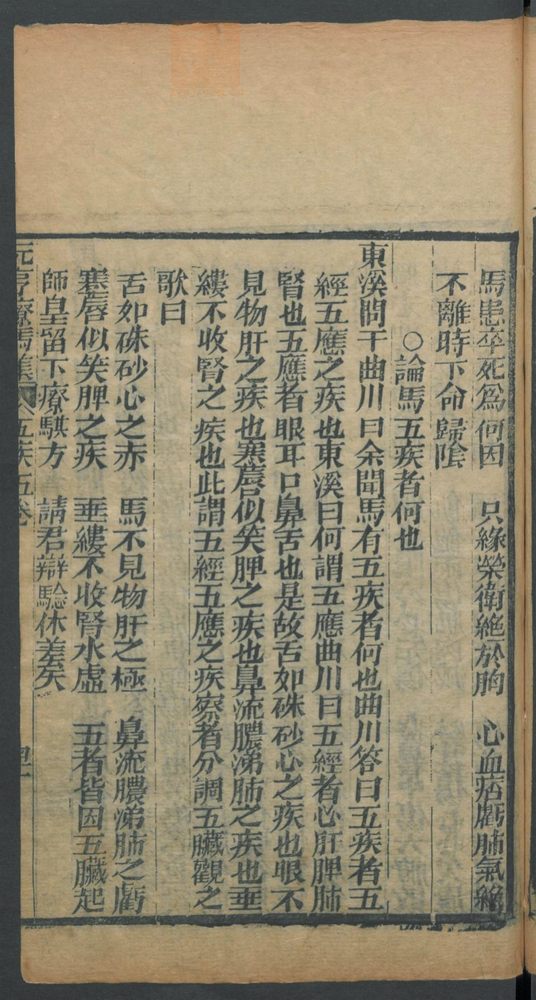 馬患卒死爲何因　只緣榮衛絶於胸　心血痞虧肺氣絶
不離時下命歸陰
○論馬五疾者何也
東溪問于曲川曰余聞馬有五疾者何也曲川答曰五疾者五
經五應之疾也東溪曰何謂五應曲川曰五經者心肝脾肺
腎也五應者眼耳口鼻舌也是故舌如硃砂心之疾也眼不
見物肝之疾也蹇唇似笑脾之疾也鼻流膿涕肺之疾也垂
縷不收腎之疾也此謂五經五應之疾察者分調五臟觀之
歌曰
舌如硃砂心之赤　馬不見物肝之極　鼻流膿涕肺之虧
蹇唇似笑脾之疾　垂縷不收腎水虛　五者皆因五臟起
師皇留下療騏方　請君辯驗休差矣
元亨療馬集　五疾五卷